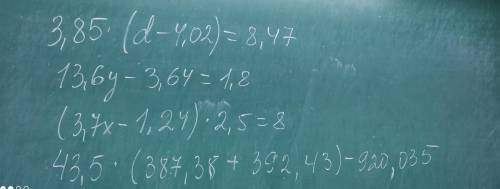 3,85·(d-4,02)=8,47
13,6y-3,64=1,8
(3,7x-1,24)·2,5=8
43,5·(387,38+392,43)-920,035